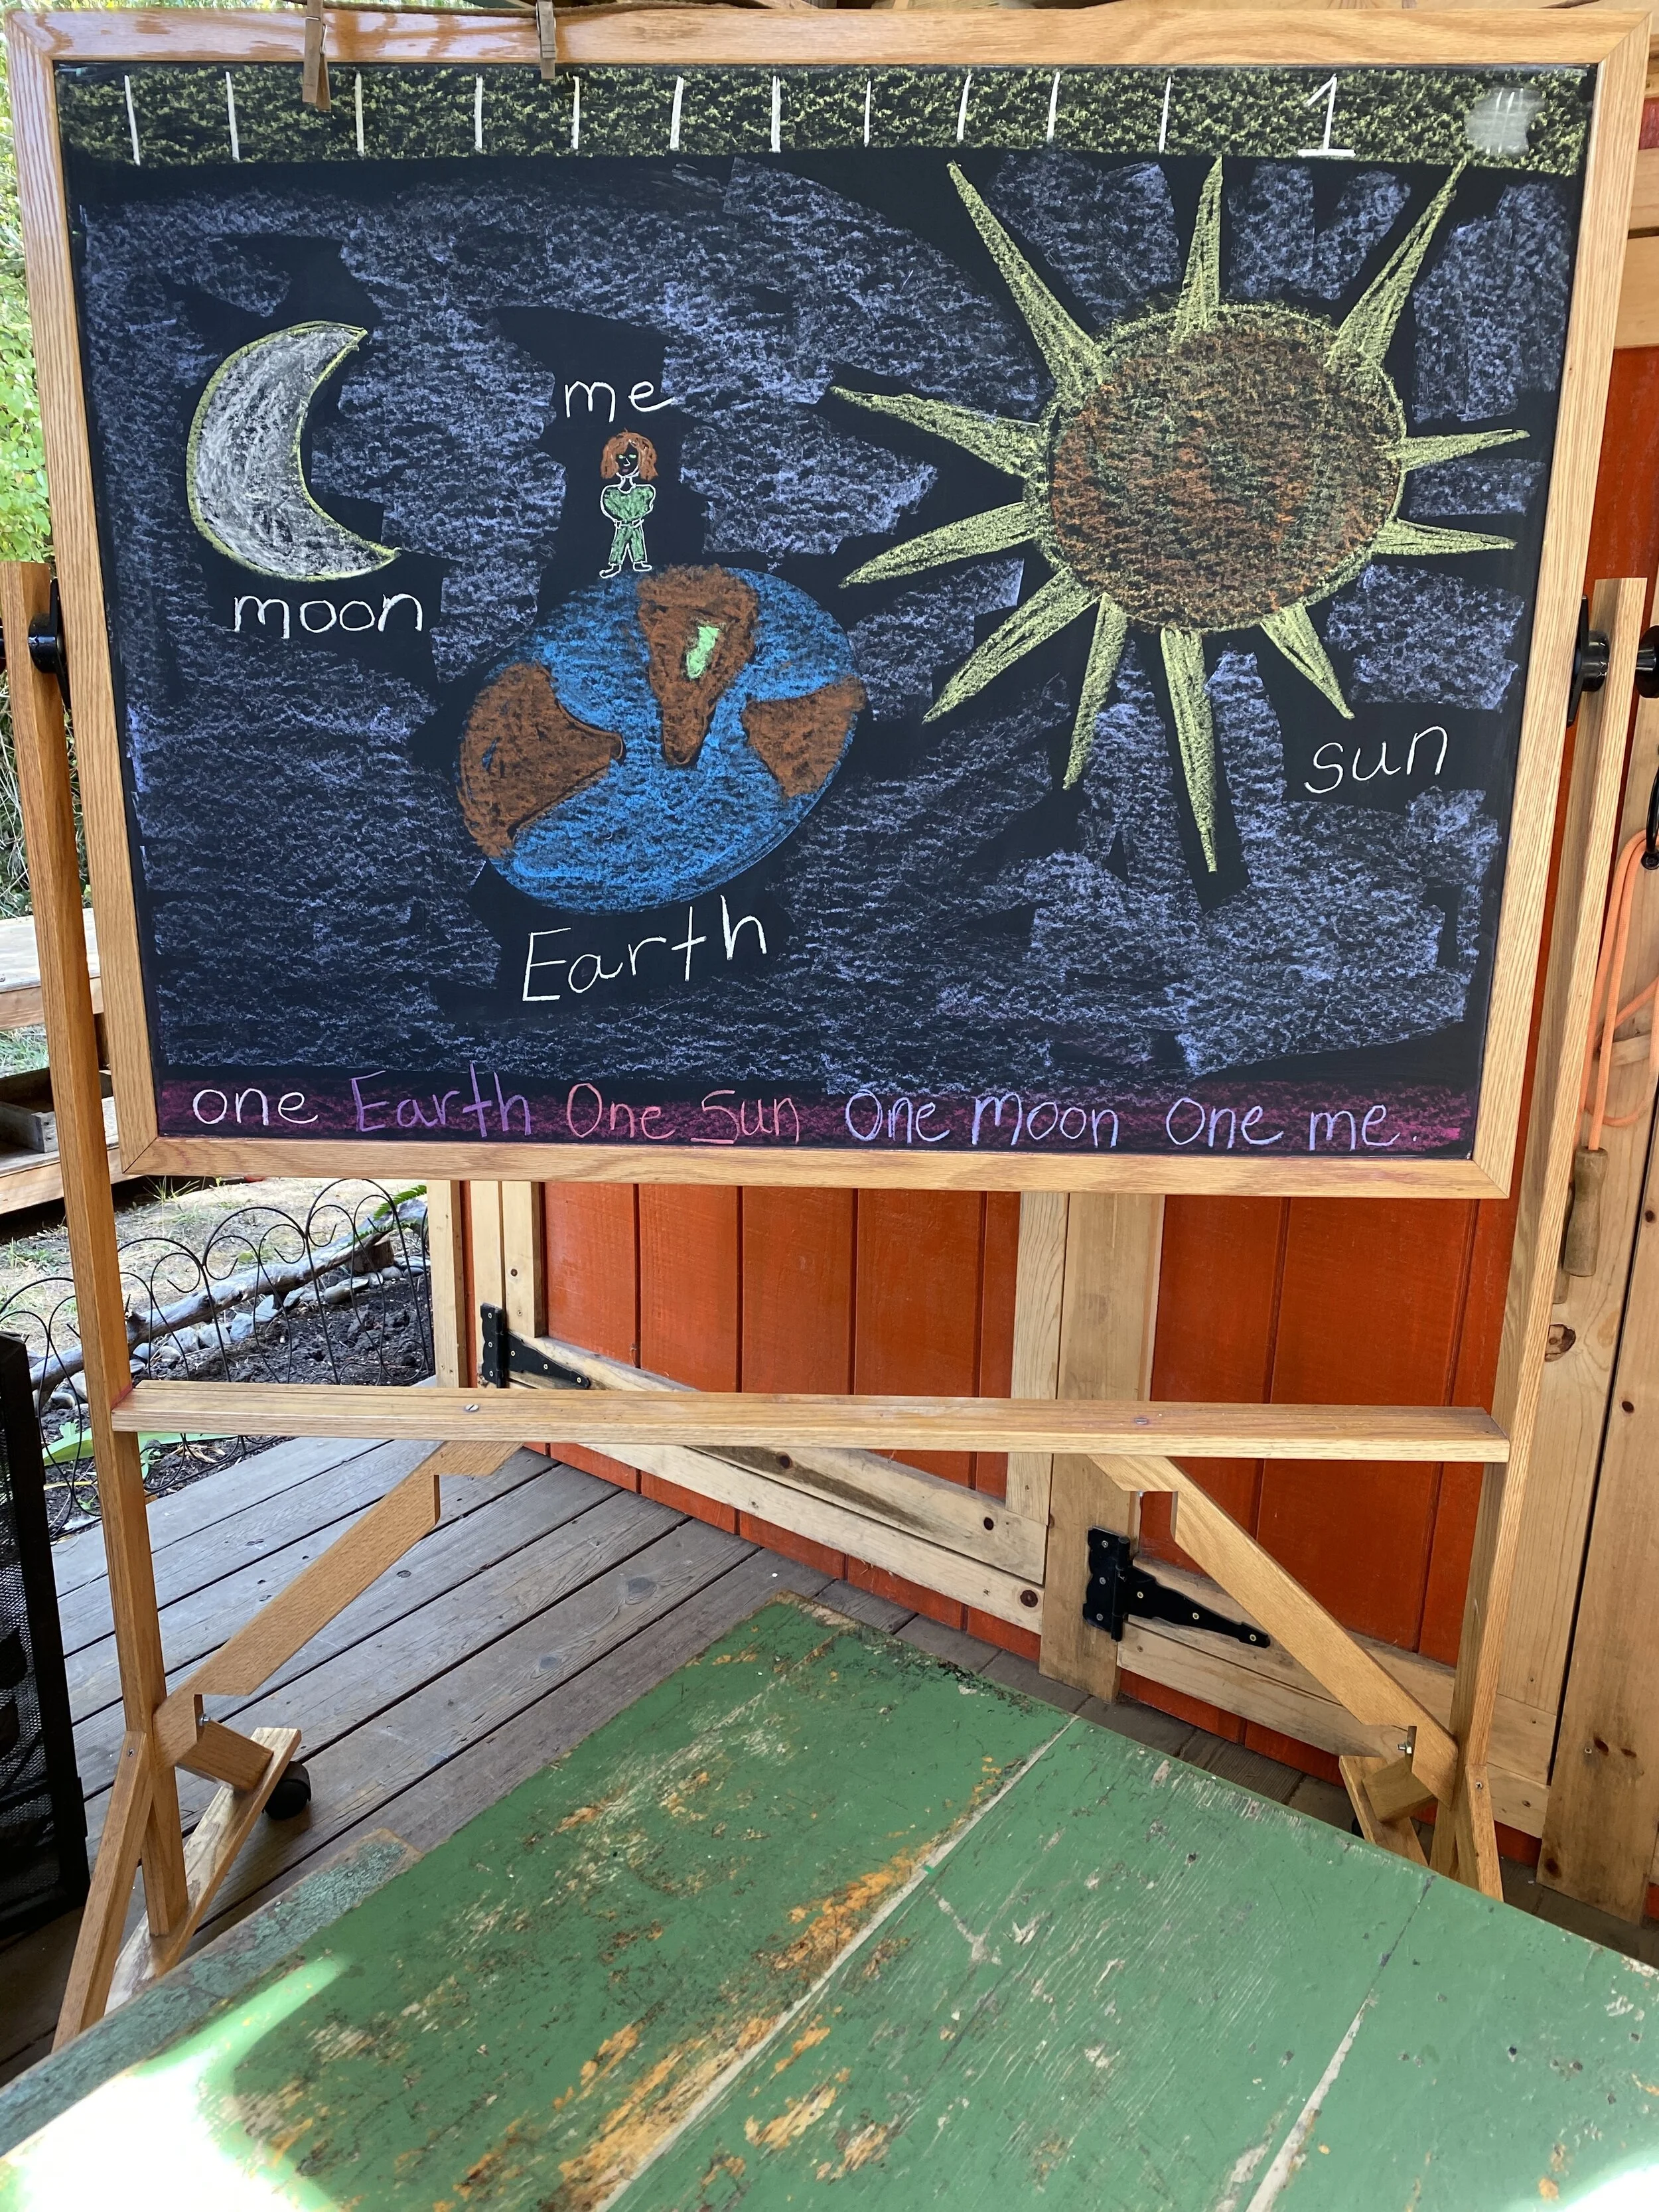 1
me
moon
sun
Earth
one Earth One Sun One Moon One me.